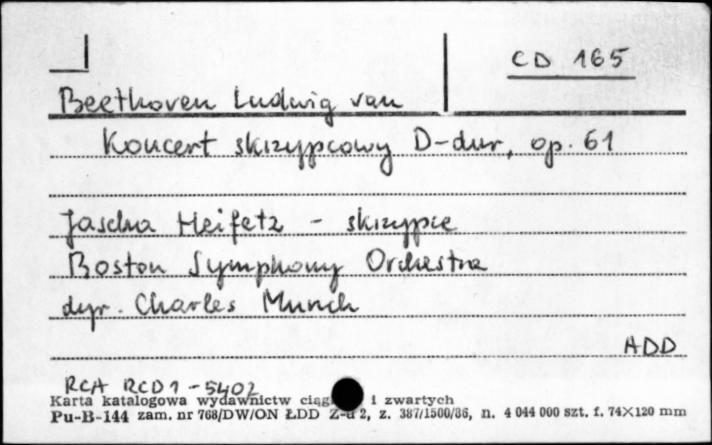 CD 165
Beethoven Ludwig van
Koncert skrzypcowy D-dur, op. 61
Jascha Heifetz - skrzypce
Boston Symphony Orchestra
dyr. Charles Munch
ADD
RCA RCD1-5402
Karta katalogowa wydawnictw ciągł i zwartych
Pu-B-144 zam. nr 768/DW/ON ŁDD Z-d 2, z. 387/1500/86, n. 4 044 000 szt. f. 74×120 mm